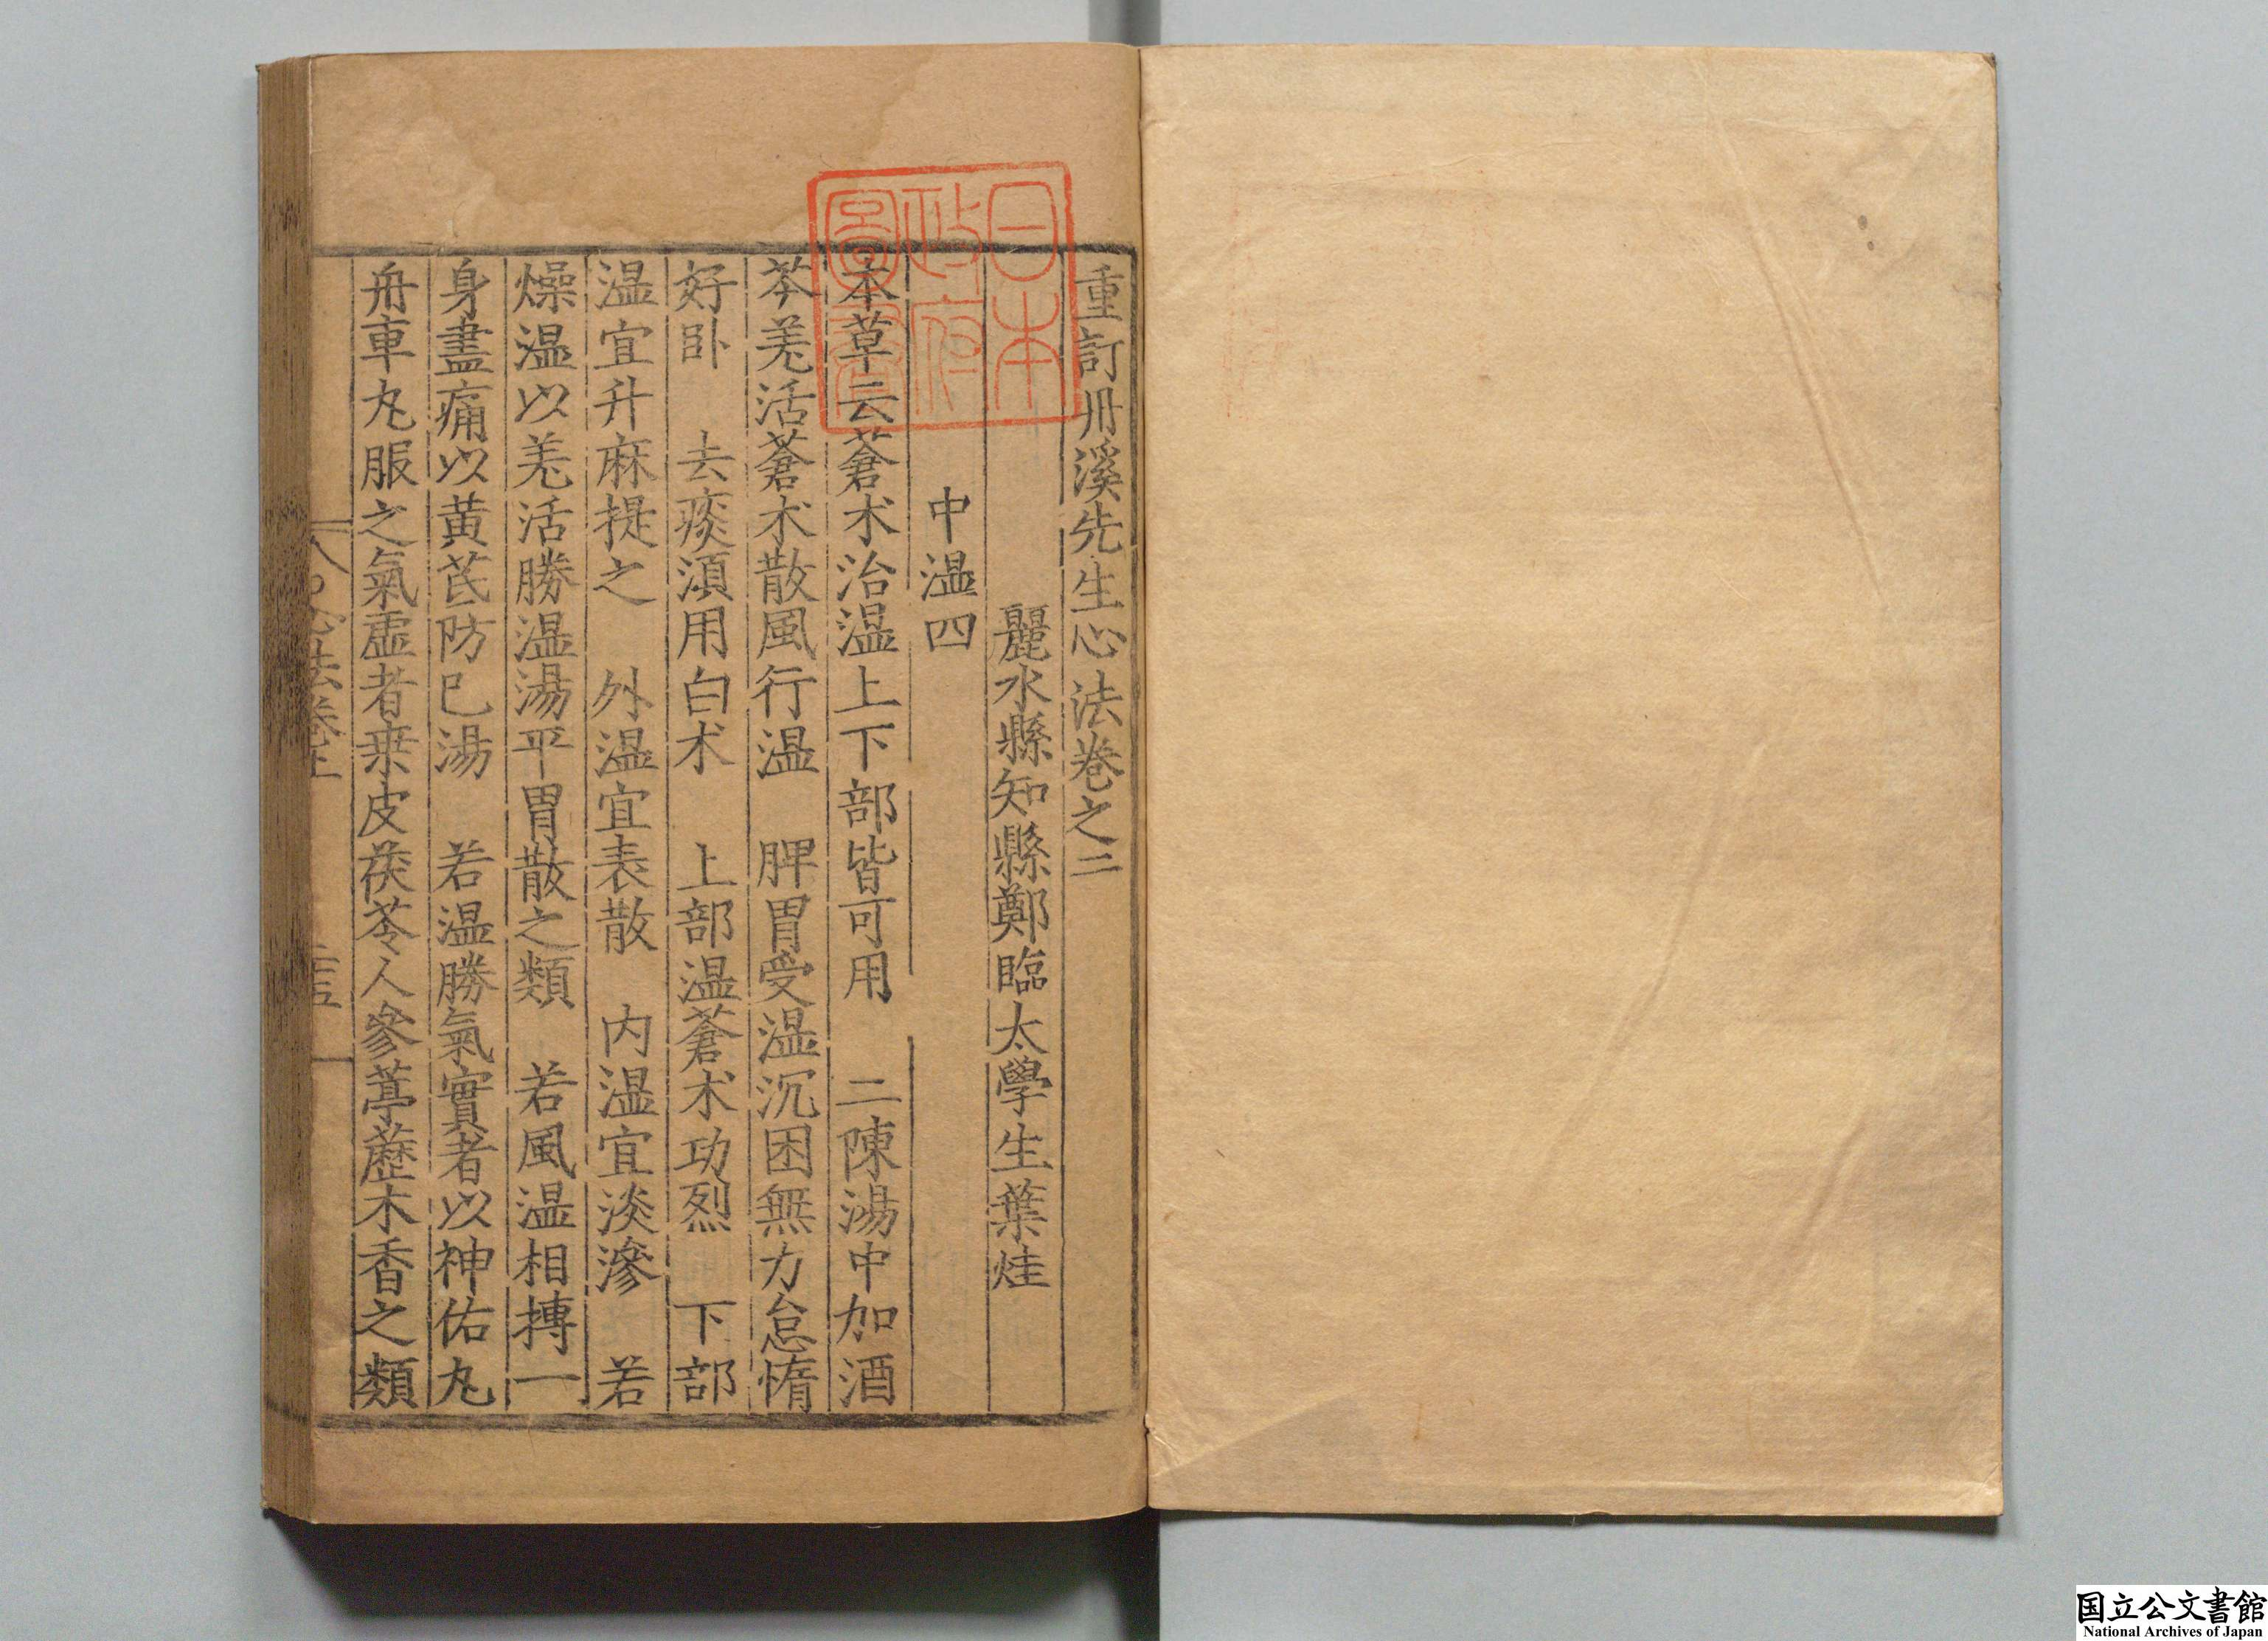 日本
政府
圖書
重訂丹溪先生心法卷之二
麗水縣知縣鄭臨太學生葉烓
中湿四
本草云蒼朮治湿上下部皆可用　二陳湯中加酒
芩羌活蒼朮散風行湿　脾胃受湿沉困無力怠惰
好卧　去痰湏用白朮　上部湿蒼朮功烈　下部
湿宜升麻提之　外湿宜表散　内湿宜淡滲　若
燥湿以羌活勝湿湯平胃散之類　若風湿相摶一
身盡痛以黄芪防已湯　若湿勝氣實者以神佑丸
舟車丸服之氣虚者桒皮茯苓人參葶藶木香之類
心法卷上
国立公文書館
National Archives of Japan